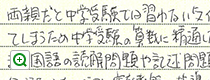 両親だと中学受験では習わない
てしまうため中学受験の算数に精通
国語の読解問題や記述問題